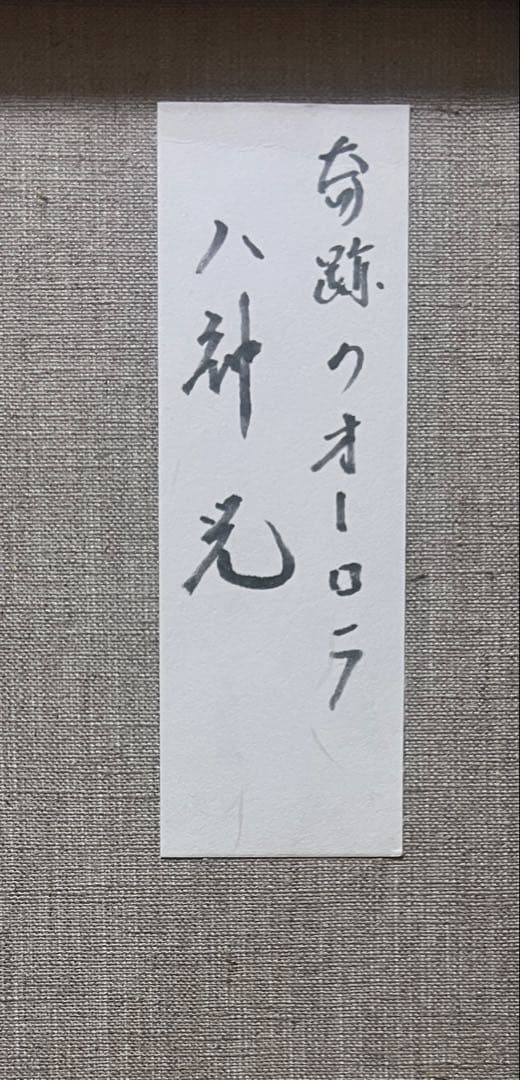 奇跡のオーロラ
八神光